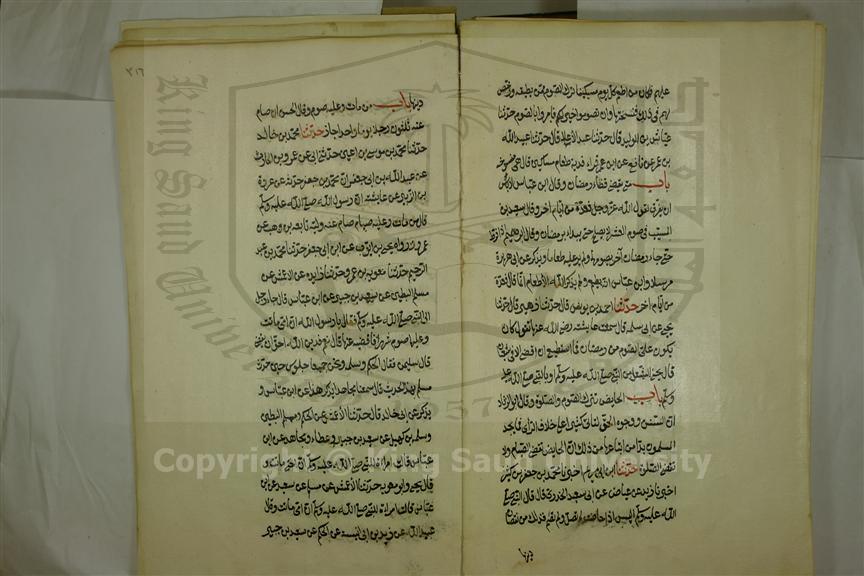 عليهم فكان من اطعم كل يوم مسكينا ترك الصوم ممن يطيقه ورخص
لهم في ذلك فنسختها وان تصوموا خير لكم فامروا بالصوم حدثنا
عياش بن الوليد قال حدثنا عبد الاعلى قال حدثنا عبيد الله
بن عمر عن نافع عن ابن عمر قراء فدية طعام مساكين قال هي منسوخة
باب متى يقضي قضاء رمضان وقال ابن عباس لا باس
ان يفرق لقول الله عز وجل فعدة من ايام اخر وقال سعيد بن
المسيب في صوم العشر لا يصلح حتى يبداء برمضان وقال ابراهيم اذا فرط
حتى جاء رمضان آخر يصومهما ولم ير عليه طعاما ويذكر عن ابي هريرة
مرسلا وابن عباس انه يطعم ولم يذكر الله الاطعام انما قال فعدة
من ايام اخر حدثنا احمد بن يونس قال حدثنا زهير قال حدثنا
يحيى عن ابي سلمة قال سمعت عائشة رضي الله عنها تقول كان
يكون علي الصوم من رمضان فما استطيع ان اقضي الا في شعبان
قال يحيى الشغل من النبي صلى الله عليه وسلم او بالنبي صلى الله عليه
وسلم باب الحايض تترك الصوم والصلوة وقال ابو الزناد
ان السنن ووجوه الحق لتاتي كثيرا على خلاف الراي فما يجد
المسلمون بدا من اتباعها من ذلك ان الحايض تقضي الصيام ولا
تقضي الصلوة حدثنا ابن ابي مريم اخبرنا محمد بن جعفر بن كثير
اخبرني زيد عن عياض عن ابي سعيد الخدري قال قال النبي صلى
الله عليه وسلم اليس اذا حاضت لم تصل ولم تصم فذلك من نقصان
دينها
٣١٦
دينها باب من مات وعليه صوم وقال الحسن ان صام
عنه ثلثون رجلا يوما واحدا جاز حدثنا محمد بن خالد
حدثنا محمد بن موسى بن اعين حدثنا ابي عن عمرو بن الحارث
عن عبيد الله بن ابي جعفر ان محمد بن جعفر حدثه عن عروة
بن الزبير عن عائشة ان رسول الله صلى الله عليه وسلم
قال من مات وعليه صيام صام عنه وليه تابعه بن وهب عن
عمرو ورواه يحيى بن ايوب عن ابن ابي جعفر حدثنا محمد بن عبد
الرحيم حدثنا معوية بن عمرو حدثنا زايدة عن الاعمش عن
مسلم البطين عن سعيد بن جبير عن ابن عباس قال جاء رجل
الى النبي صلى الله عليه وسلم فقال يا رسول الله ان امي ماتت
وعليها صوم شهر افاقضيه عنها قال نعم فدين الله احق ان يقضى
قال سليمن فقال الحكم وسلمة ونحن جميعا جلوس حين حدث
مسلم بهذا الحديث قال سمعنا مجاهدا يذكر هذا عن ابن عباس و
يذكر عن ابي خالد قال حدثنا الاعمش عن الحكم ومسلم البطين
وسلمة بن كهيل عن سعيد بن جبير وعطاء ومجاهد عن ابن
عباس قالت امراة للنبي صلى الله عليه وسلم ان اختي ماتت و
قال يحيى وابو معوية حدثنا الاعمش عن مسلم عن سعيد عن ابن
عباس قالت امراة للنبي صلى الله عليه وسلم ان امي ماتت وقال
عبيد الله عن زيد بن ابي انيسة عن الحكم عن سعيد بن جبير
King Saud University
1957
Copyright © King Saud University